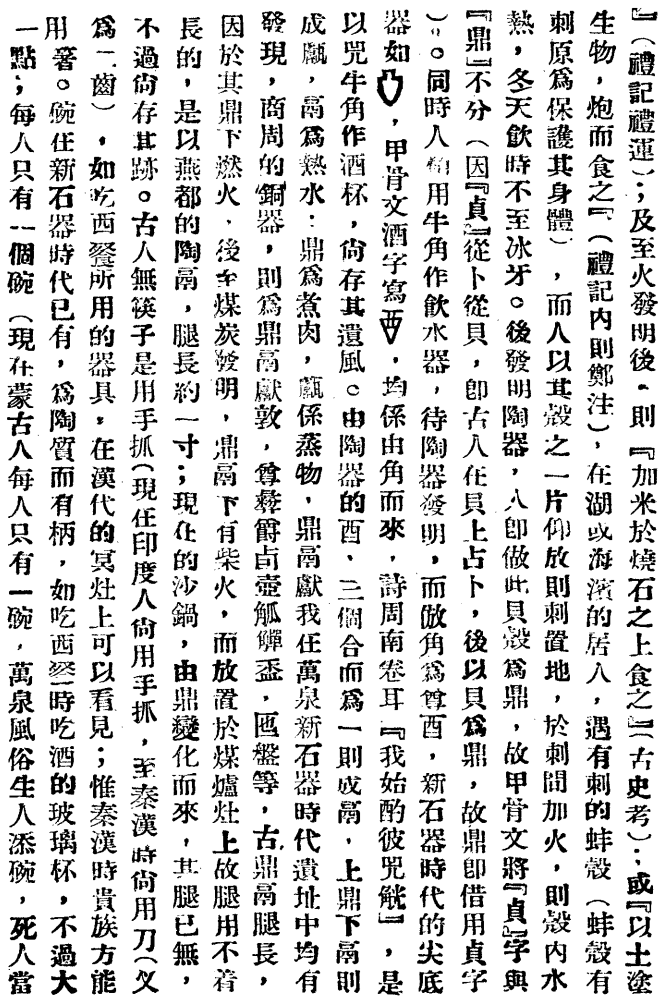 』（禮記禮運）；及至火發明後，則『加米於燒石之上食之』（古史考）：或『以土塗
生物，炮而食之』（禮記內則鄭注），在湖或海濱的居人，遇有刺的蚌殼（蚌殼有
刺原爲保護其身體），而人以其殼之一片仰放則刺置地，於刺間加火，則殼內水
熱，冬天飲時不至冰牙。後發明陶器，人卽做此貝殼爲鼎，故甲骨文將『貞』字與
『鼎』不分（因『貞』從卜從貝，卽古人在貝上占卜，後以貝爲鼎，故鼎卽借用貞字
）。同時人們用牛角作飲水器，待陶器發明，而倣角爲尊酉，新石器時代的尖底
器如，甲骨文酒字寫，均係由角而來，詩周南卷耳『我始酌彼兕觥』，是
以兕牛角作酒杯，尙存其遺風。由陶器的酉、三個合而爲一則成鬲，上鼎下鬲則
成甗，鬲爲熱水：鼎爲煮肉，甗係蒸物，鼎鬲獻我在萬泉新石器時代遺址中均有
發現，商周的銅器，則爲鼎鬲獻敦，尊彝爵卣壺觚觶盉，匜盤等，古鼎鬲腿長，
因於其鼎下燃火，後至煤炭發明，鼎鬲下有柴火，而放置於煤爐灶上故腿用不着
長的，是以燕都的陶鬲，腿長約一寸；現在的沙鍋，由鼎變化而來，其腿已無，
不過尙存其跡。古人無筷子是用手抓（現在印度人尙用手抓，至秦漢時尙用刀（义
爲二齒），如吃西餐所用的器具，在漢代的冥灶上可以看見；惟秦漢時貴族方能
用箸。碗在新石器時代已有，爲陶質而有柄，如吃西餐時吃酒的玻璃杯，不過大
一點；每人只有一個碗（現在蒙古人每人只有一碗，萬泉風俗生人添碗，死人當